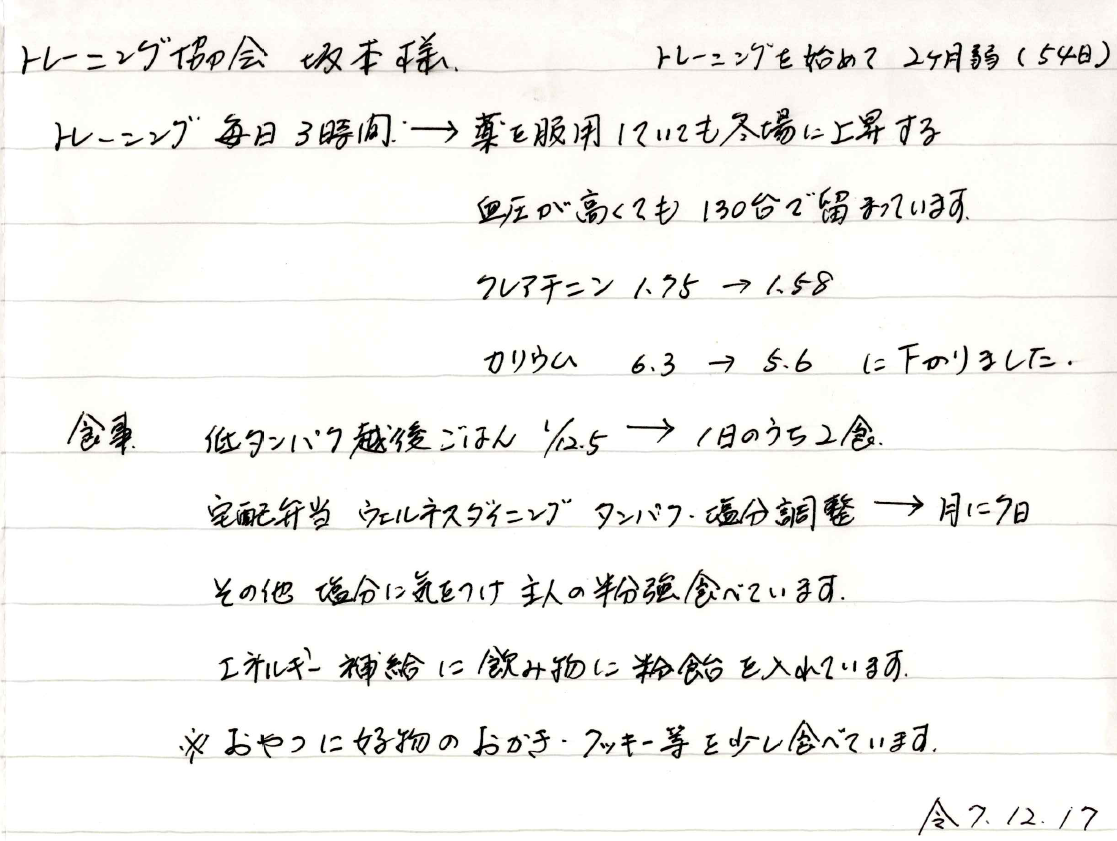 トレーニング協会 坂本様.
トレーニングを始めて 2ヶ月弱 (54日)
トレーニング 毎日 3時間. → 薬を服用していても冬場に上昇する
血圧が高くても 130台で留まっています.
クレアチニン 1.75 → 1.58
カリウム 6.3 → 5.6 に下がりました.
食事. 低タンパク越後ごはん 1/12.5 → 1日のうち2食.
宅配弁当 ウェルネスダイニング タンパク・塩分調整 → 月に7日
その他 塩分に気をつけ 主人の半分強食べています.
エネルギー補給に飲み物に粉飴を入れています.
※ おやつに好物のおかき・クッキー等を少し食べています.
令7.12.17